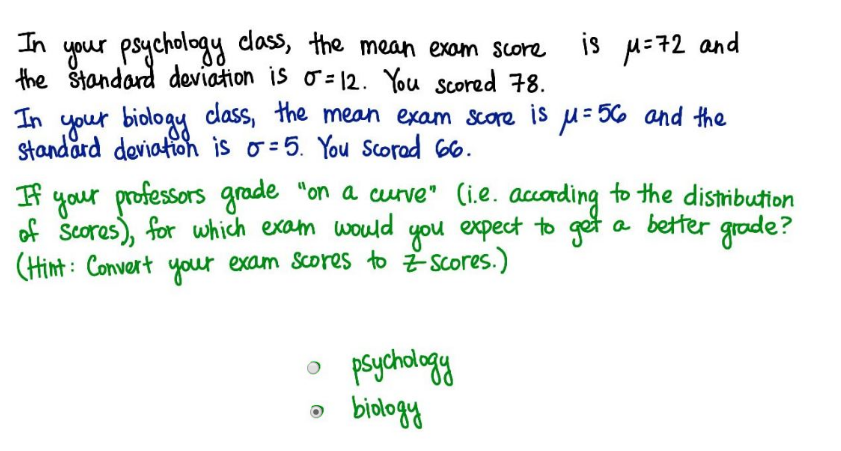 In your psychology class, the mean exam score is μ=72 and
the standard deviation is σ=12. You scored 78.
In your biology class, the mean exam score is μ=56 and the
standard deviation is σ=5. You scored 66.
If your professors grade "on a curve" (i.e. according to the distribution
of scores), for which exam would you expect to get a better grade?
(Hint: Convert your exam scores to z-scores.)
psychology
biology